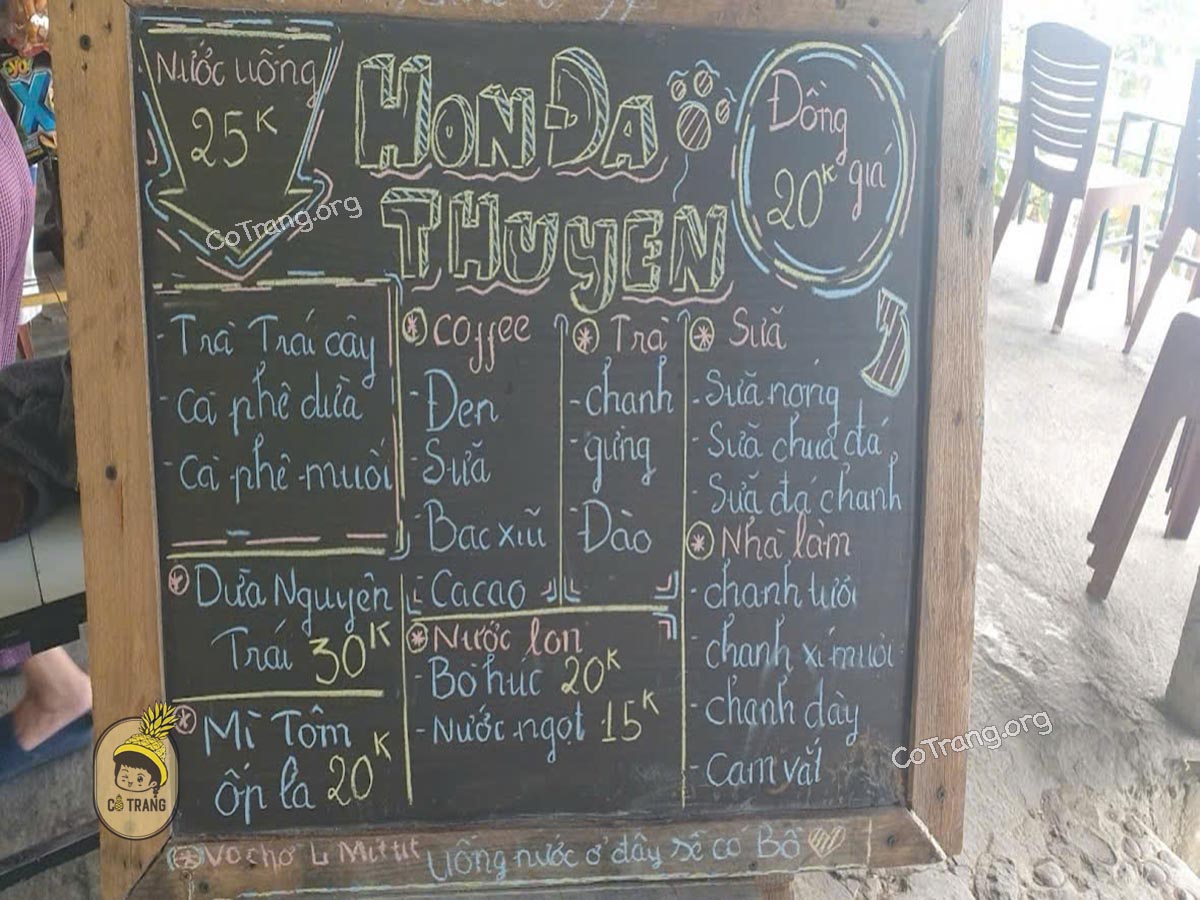 Nước uống
25K
HON ĐA
THUYEN
Đồng
giá
20K
CoTrang.org
- Trà Trái cây
- cà phê dừa
- cà phê muối
Dừa Nguyên
Trái 30K
Mì Tôm
ốp la 20K
coffee
- Đen
- Sữa
- Bac xỉu
- Cacao
Trà
- chanh
- gừng
- Đào
Nước lon
- Bò húc 20K
- Nước ngọt 15K
Sữa
- Sữa nóng
- Sữa chua đá
- Sữa đá chanh
Nhà làm
- chanh tươi
- chanh xí muội
- chanh dây
- cam vắt
CoTrang.org
CÔ TRANG
Uống nước ở đây sẽ có Bồ